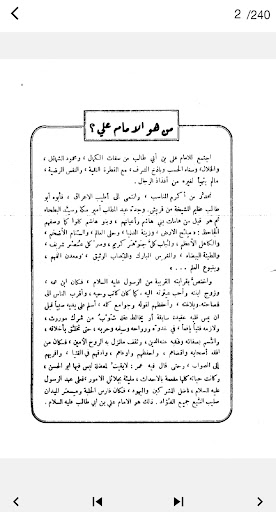 2 /240
من هو الامام علي ؟
اجتمع للامام علي بن أبي طالب من صفات الكمال ، ومحمود الشمائل ،
والخلال ، وسناء الحسب وباذخ الشرف ، مع الفطرة النقية ، والنفس المرضية ،
مالم يتهيأ لغيره من أفذاذ الرجال .
تحدّر من أكرم المناسب ، وانتمى الى أطيب الاعراق ، فأبوه أبو
طالب عظيم المشيخة من قريش . وجده عبد المطلب أمير مكة وسيد البطحاء
ثم هو قبل من هامات بني هاشم وأعيانهم ، وبنو هاشم كانوا كما وصفهم
الجاحظ : « ملح الارض ، وزينة الدنيا ، وحلى العالم ، والسنام الأضخم ،
والكاهل الأعظم ، ولباب كل جوهر كريم ، وسر كل عنصر شريف ،
والطينة البيضاء ، والمغرس المبارك والنصاب الوثيق ، ومعدن الفهم ،
وينبوع العلم ... »
واختص بقرابته القريبة من الرسول عليه السلام ، فكان ابن عمه ،
وزوج ابنته وأحب عترته اليه ، كما كان كاتب وحيه ، وأقرب الناس الى
فصاحته وبلاغته ، وأحفظهم لقوله وجوامع كلمه ، أسلم على يديه صبياً قبل
أن يمس قلبه عقيدة سابقة أو يخالط عقله شوب من شرك موروث ،
ولازمه فتياً يافعاً في غدوه ورواحه وسلمه وحربه ، حتى تخلق بأخلاقه ،
واتسم بصفاته وفقه عنه الدين ، وثقف ما نزل به الروح الأمين ، فكان من
أفقه أصحابه وأقضاهم ، وأحفظهم وأوعاهم ، وأدقهم في الفتيا ، وأقربهم
الى الصواب ، وحتى قال فيه عمر : لا بقيت لمعضلة ليس لها أبو الحسن ،
وكانت حياته كلها مفعمة بالاحداث ، مليئة بجلائل الامور ، فعلى عهد الرسول
عليه السلام ، ناضل المشركين واليهود ، فكان فارس الحلبة ومسعر الميدان
صليب النبع جميع الفؤاد . ذلك هو الامام علي بن أبي طالب عليه السلام .